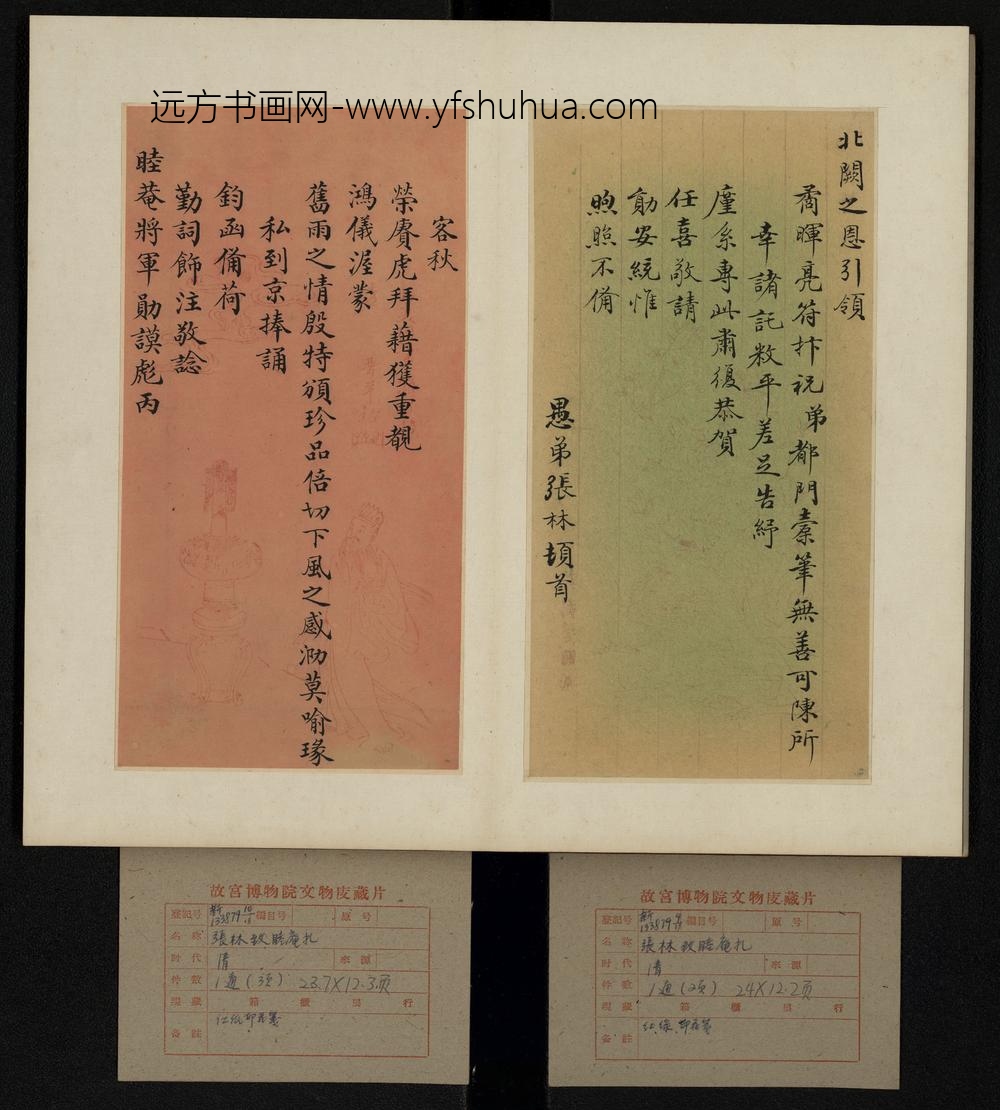 远方书画网-www.yfshuhua.com
北闕之恩引領
矞暉亮符抃祝弟都門橐筆無善可陳所
幸諸託敉平差足告紓
廑系專此肅復恭賀
任喜敬請
勛安統惟
煦照不備
愚弟張林頓首
客秋
榮賡虎拜藉獲重覩
鴻儀渥蒙
舊雨之情殷特頒珍品倍切下風之感泐莫喻瑑
私到京捧誦
鈞函備荷
勤詞飾注敬諗
睦菴將軍勛謨彪丙
故宮博物院文物庋藏片
登記号 新133879 10/11 編目号 原号
名称 張林致睦庵札
时代 清 來源
件数 1通(3頁) 23.7×12.3页
現藏 箱 櫃 屉 行
备註 红纸印花箋
故宮博物院文物庋藏片
登記号 新133879 編目号 原号
名称 張林致睦庵札
时代 清 來源
件数 1通(2頁) 24×12.2页
現藏 箱 櫃 屉 行
备註 印花箋